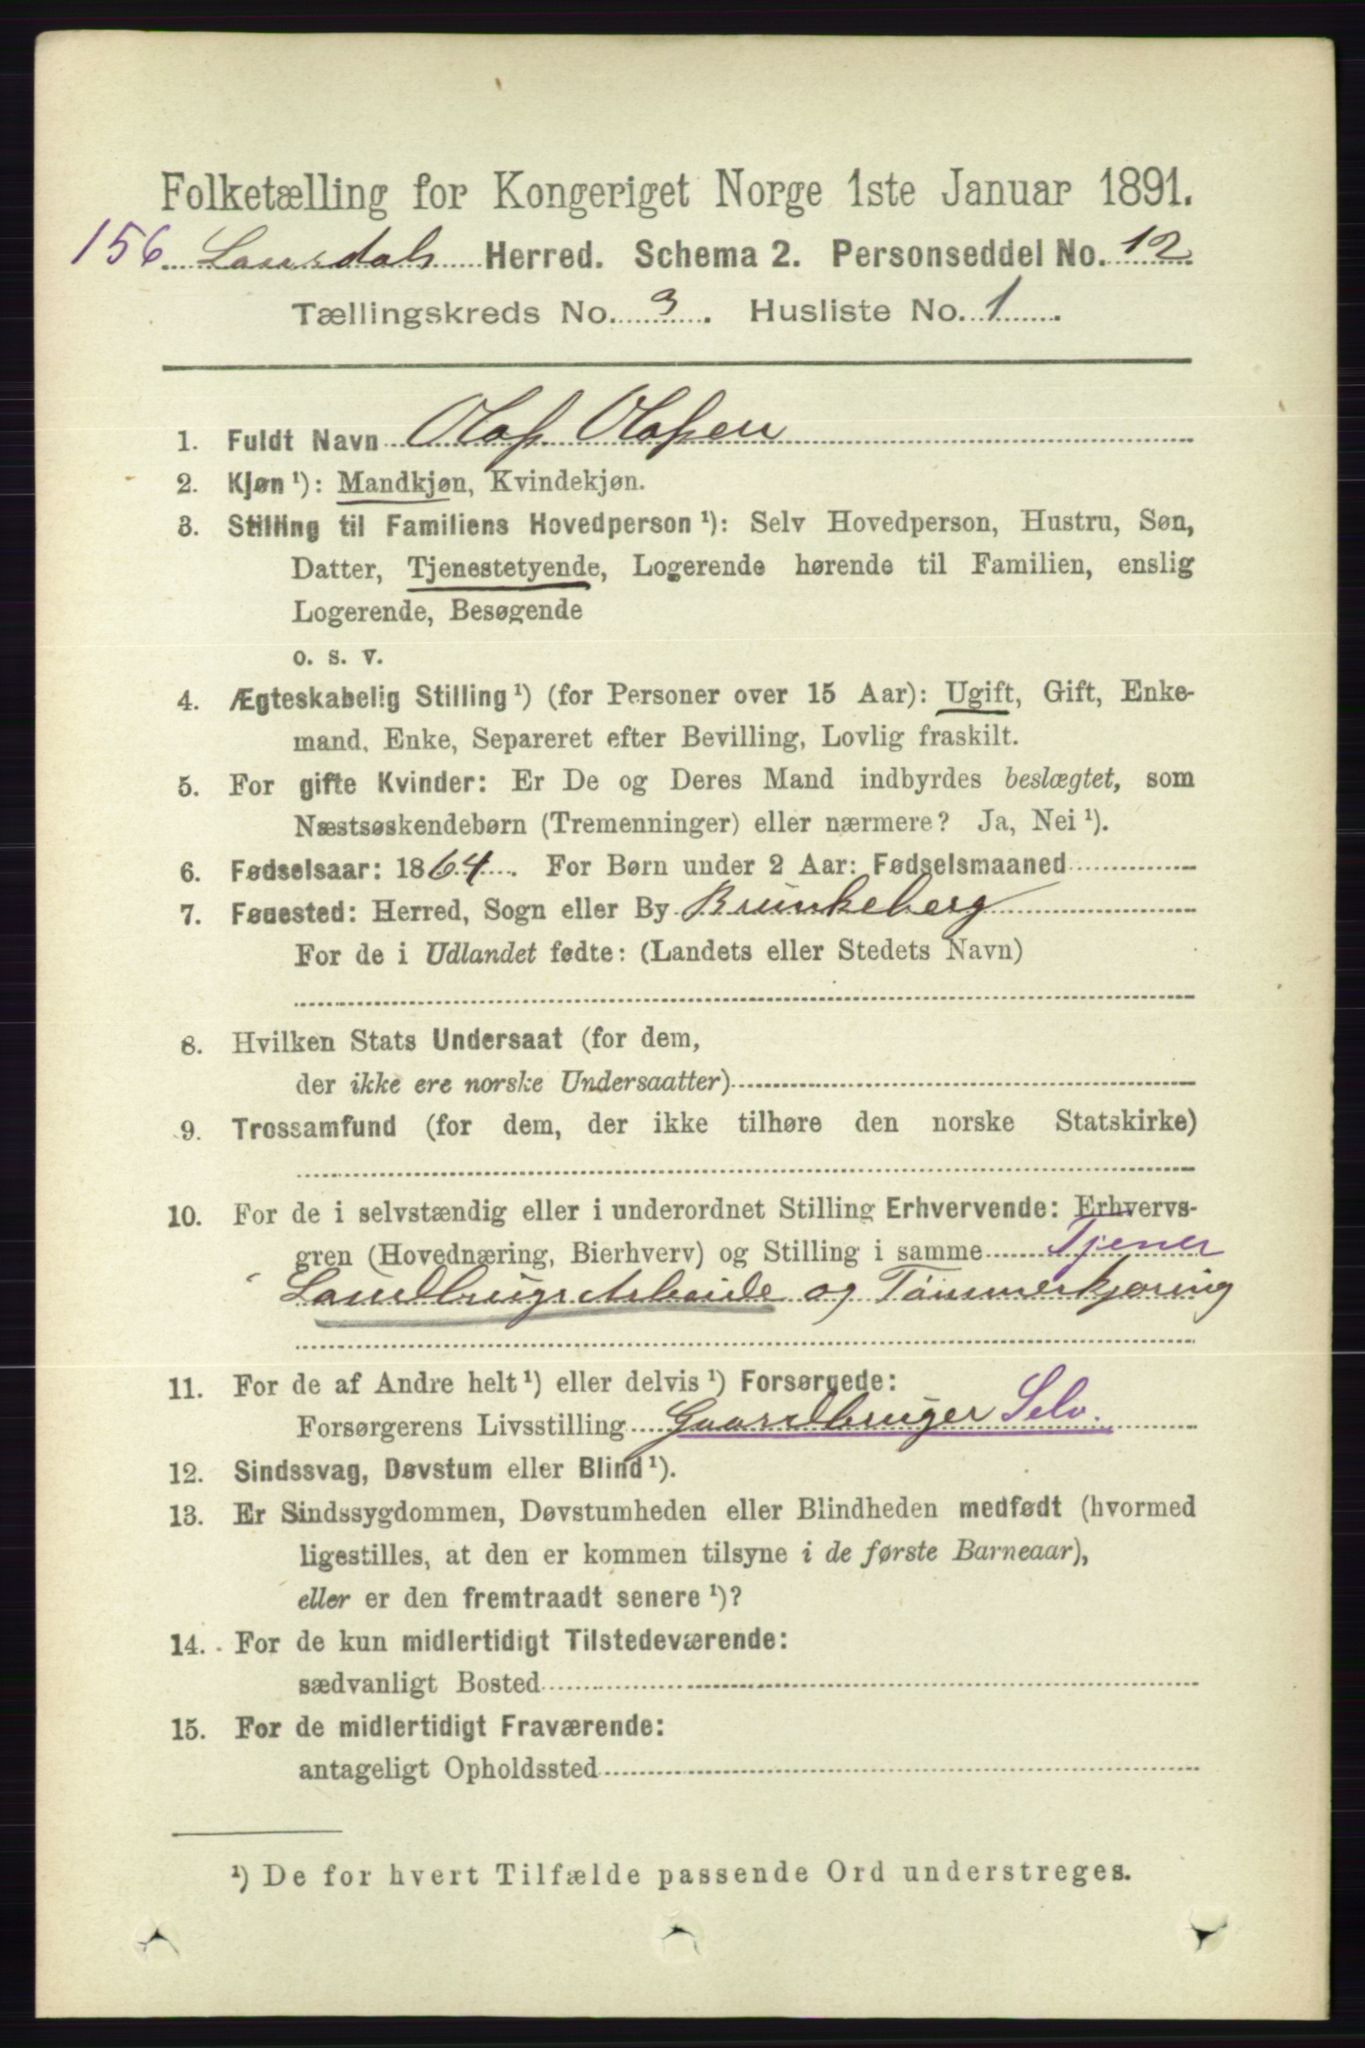 Folketælling for Kongeriget Norge 1ste Januar 1891.
156 Laurdals Herred. Schema 2. Personseddel No. 12
Tællingskreds No. 3. Husliste No. 1.
1. Fuldt Navn Olaf Olafsen
2. Kjøn ¹): Mandkjøn, Kvindekjøn.
3. Stilling til Familiens Hovedperson ¹): Selv Hovedperson, Hustru, Søn,
Datter, Tjenestetyende, Logerende hørende til Familien, enslig
Logerende, Besøgende
o. s. v.
4. Ægteskabelig Stilling ¹) (for Personer over 15 Aar): Ugift, Gift, Enke-
mand, Enke, Separeret efter Bevilling, Lovlig fraskilt.
5. For gifte Kvinder: Er De og Deres Mand indbyrdes beslægtet, som
Næstsøskendebørn (Tremenninger) eller nærmere? Ja, Nei ¹).
6. Fødselsaar: 1864. For Børn under 2 Aar: Fødselsmaaned
7. Fødested: Herred, Sogn eller By Brunkeberg
For de i Udlandet fødte: (Landets eller Stedets Navn)
8. Hvilken Stats Undersaat (for dem,
der ikke ere norske Undersaatter)
9. Trossamfund (for dem, der ikke tilhøre den norske Statskirke)
10. For de i selvstændig eller i underordnet Stilling Erhvervende: Erhvervs-
gren (Hovednæring, Bierhverv) og Stilling i samme Tjener
Landbrugsarbeide og Tømmerkjøring
11. For de af Andre helt ¹) eller delvis ¹) Forsørgede:
Forsørgerens Livsstilling Gaardbruger Selv.
12. Sindssvag, Døvstum eller Blind ¹).
13. Er Sindssygdommen, Døvstumheden eller Blindheden medfødt (hvormed
ligestilles, at den er kommen tilsyne i de første Barneaar),
eller er den fremtraadt senere ¹)?
14. For de kun midlertidigt Tilstedeværende:
sædvanligt Bosted
15. For de midlertidigt Fraværende:
antageligt Opholdssted
¹) De for hvert Tilfælde passende Ord understreges.